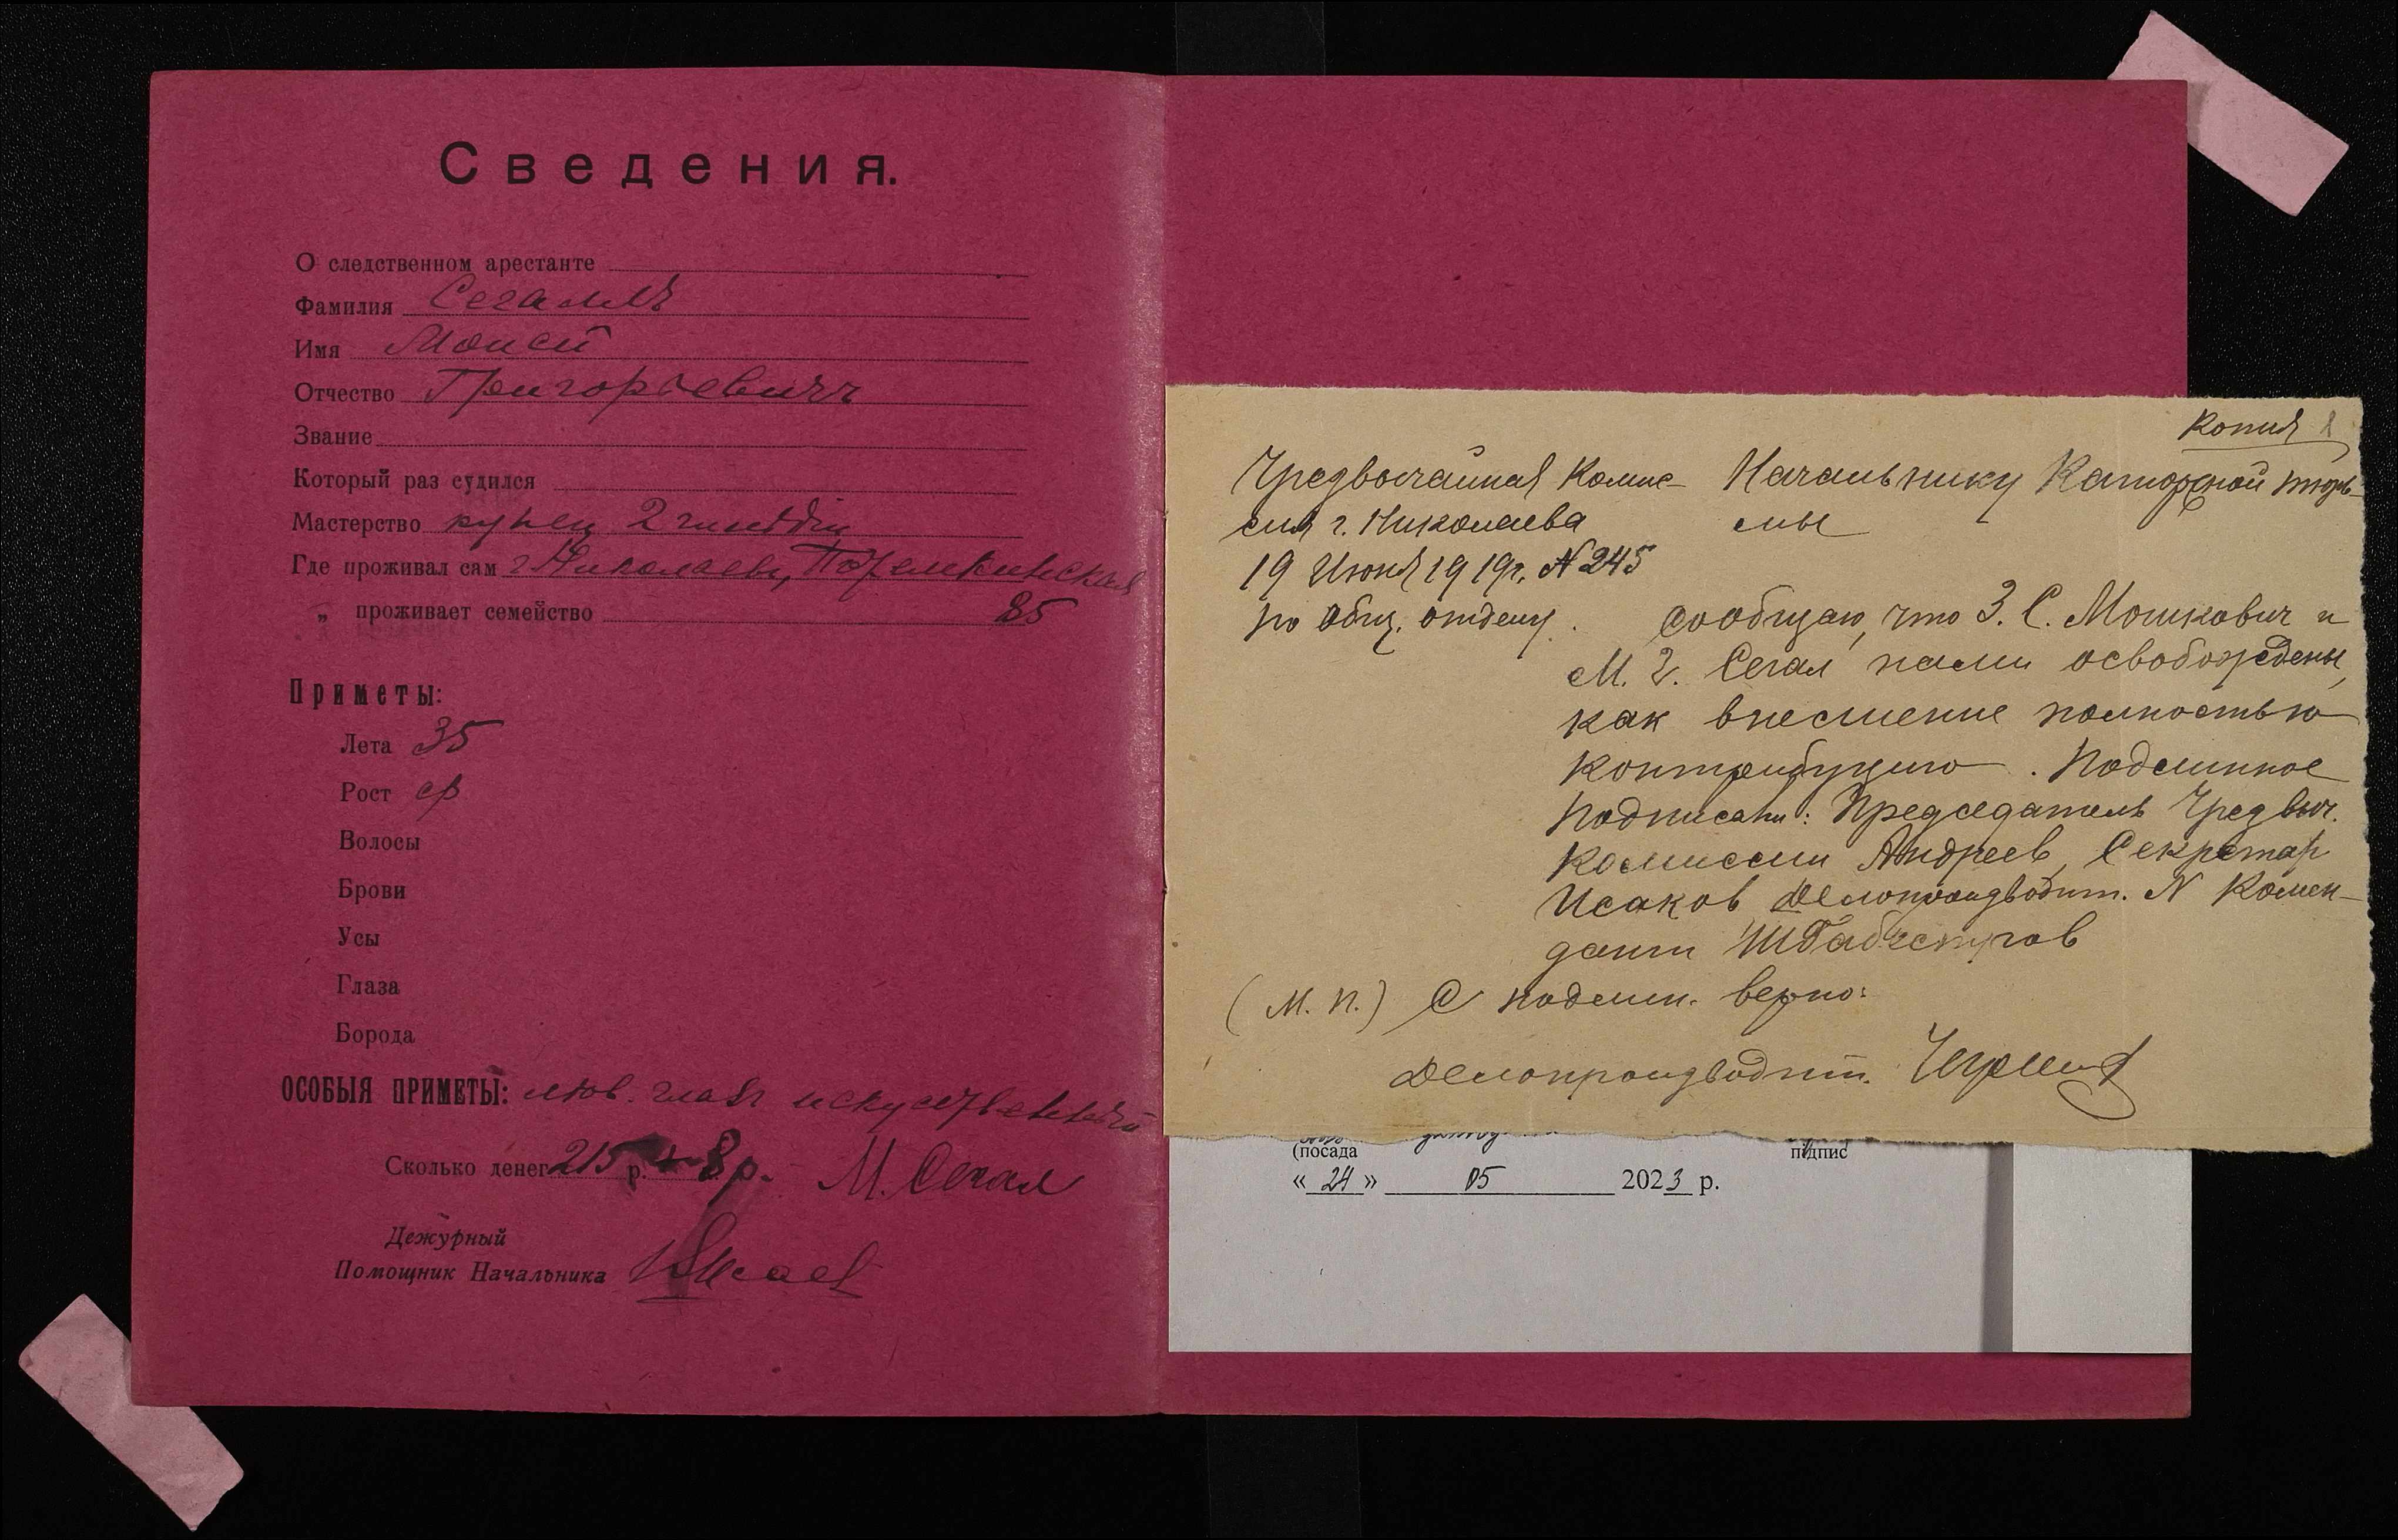 Сведения.
О следственном арестанте
Фамилия Сегалъ
Имя Моисей
Отчество Григорьевичъ
Звание
Который раз судился
Мастерство купец 2 гильдіи
Где проживал сам г. Николаевъ, Потемкинская
„ проживает семейство 85
Приметы:
Лета 35
Рост ср
Волосы
Брови
Усы
Глаза
Борода
ОСОБЫЯ ПРИМЕТЫ: лѣв. глазъ искуственный
Сколько денег 215 р. 8 р. М. Сегал
Дежурный
Помощник Начальника
Копия
Чрезвычайная Комис-
сия г. Николаева
19 Июня 1919г. N 245
по общ. отделу.
Начальнику Каторжной тюрь-
мы
Сообщаю, что З. С. Мошкович и
М. Г. Сегал нами освобождены,
как внесшение полностью
контрибуцию. Подлинное
подписали: Председатель Чрезвыч.
Комиссии Андреев, Секретар
Исаков Делопроизводит. N Комен-
дант
(М. П.) С подлин. верно:
Делопроизводит.
(посада
підпис
« 24 » 05 2023 р.